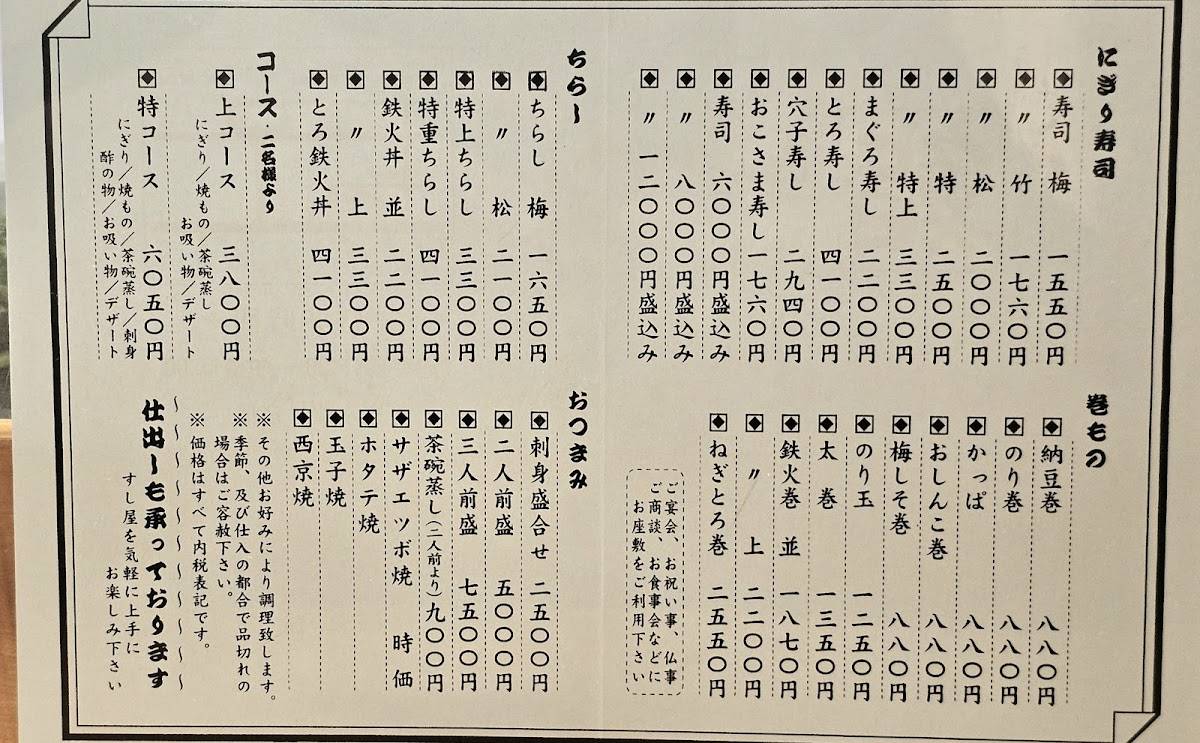 にぎり寿司
寿司 梅 一五五〇円
〃 竹 一七六〇円
〃 松 二〇〇〇円
〃 特 二五〇〇円
〃 特上 三三〇〇円
まぐろ寿し 二二〇〇円
とろ寿し 四一〇〇円
穴子寿し 二九四〇円
おこさま寿し 一七六〇円
寿司 六〇〇〇円盛込み
〃 八〇〇〇円盛込み
〃 一二〇〇〇円盛込み
ちらし
ちらし 梅 一六五〇円
〃 松 二一〇〇円
特上ちらし 三三〇〇円
特重ちらし 四一〇〇円
鉄火丼 並 二二〇〇円
〃 上 三三〇〇円
とろ鉄火丼 四一〇〇円
コース・二名様より
上コース 三八〇〇円
にぎり/焼もの/茶碗蒸し
お吸い物/デザート
特コース 六〇五〇円
にぎり/焼もの/茶碗蒸し/刺身
酢の物/お吸い物/デザート
巻もの
納豆巻 八八〇円
のり巻 八八〇円
かっぱ 八八〇円
おしんこ巻 八八〇円
梅しそ巻 八八〇円
のり玉 一二五〇円
太巻 一三五〇円
鉄火巻 並 一八七〇円
〃 上 二二〇〇円
ねぎとろ巻 二五五〇円
ご宴会、お祝い事、仏事
ご商談、お食事会などに
お座敷をご利用下さい
おつまみ
刺身盛合せ 二五〇〇円
二人前盛 五〇〇〇円
三人前盛 七五〇〇円
茶碗蒸し(二人前より)九〇〇円
サザエツボ焼 時価
ホタテ焼
玉子焼
西京焼
※その他お好みにより調理致します。
※季節、及び仕入の都合で品切れの
場合はご容赦下さい。
※価格はすべて内税表記です。
~~~~~~~~~~~
仕出しも承っております
すし屋を気軽に上手に
お楽しみ下さい